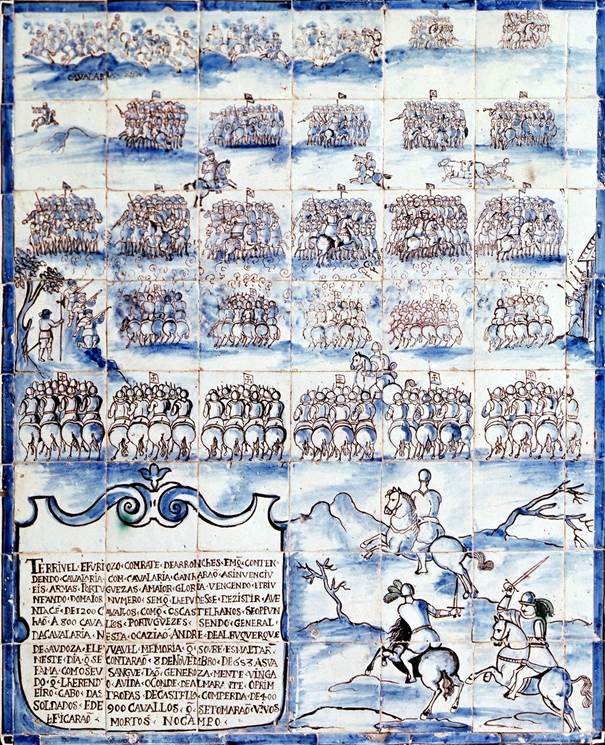 CAVALAR
TERRIVEL EFVRIOZO COMBATE DEARONCHES EMQ CONTEN
DENDO CAVALARIA COM CAVALARIA GANHARAO ASINVENCIV
EIS ARMAS PORTVGVEZAS AMAIOR GLORIA VENCENDO ITRIV
NFANDO DOMAIOR NVMERO SEMQ
NDACE DE1200 CAVALLOS COMQ OSCASTELHANOS SEOPPVN
HAÕ A 800 CAVALOS PORTVGVEZES SENDO GENERAL
DACAVALARIA NESTA OCAZIAÕ ANDRE DEALBVQVERQVE
MEMORIA Q SOVBE ESMALTAR
NESTE DIA Q SE CONTARAÕ 8 DE NOVEMBRO DE 653 ASVA
FAMA COMOSEV SANGVE TAÕ GENEROZA MENTE VINGA
DO Q LAFEREND O AVIDA OCONDE DEALMARANTE OPRIM
EIRO CABO DAS TROPAS DECASTELLA COMPERDA DE400
SOLDADOS EDE 900 CAVALLOS Q SETOMARAÕ VIVOS
EFICARAÕ MORTOS NOCAMPO